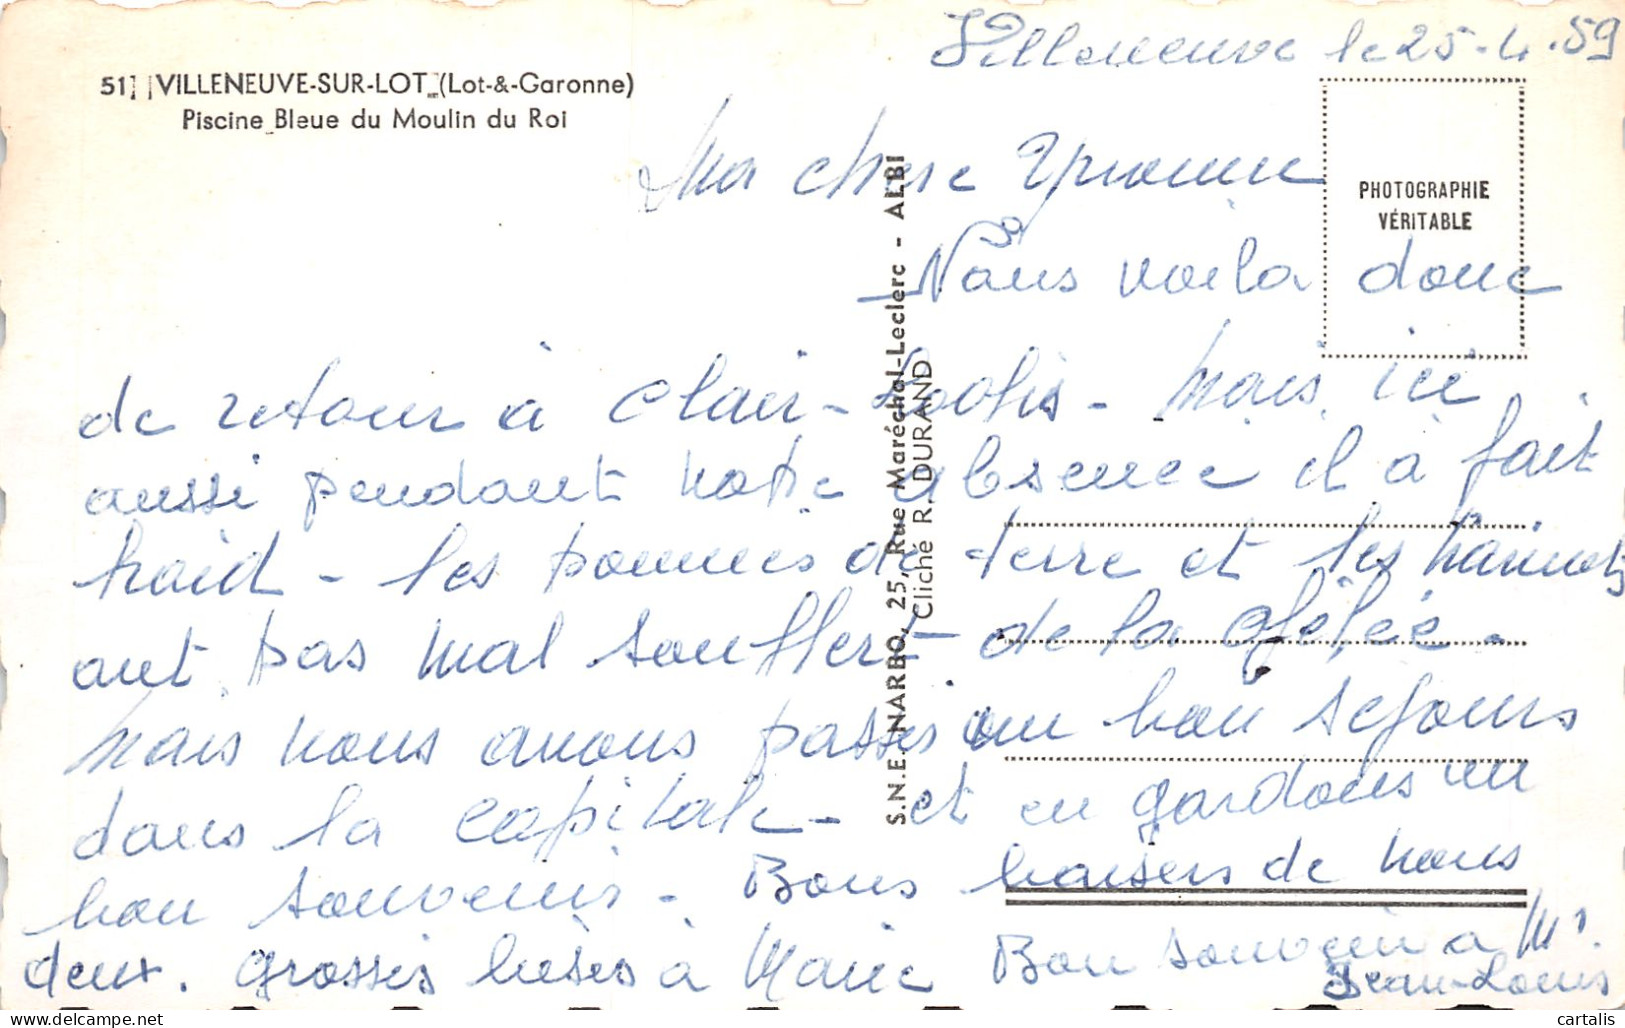 Villeneuve le 25-4-59
51 VILLENEUVE-SUR-LOT (Lot-&-Garonne)
Piscine Bleue du Moulin du Roi
PHOTOGRAPHIE
VÉRITABLE
S.N.E. NARBO, 25, Rue Maréchal-Leclerc - ALBI
Cliché R. DURAND
Ma chere Yvonne
Nous voila donc
de retour à Clair - Mais ici
aussi pendant notre absence il à fait
froid - les pommes de terre et les haricots
ont pas mal souffert de la gélée.
Mais nous avons passés un bon sejours
dans la capitale - et en gardons un
bon souvenirs - Bons baisers de nous
deux. grosses bises à Marie Bon souvenir a Mr.
Jean-Louis
cartalis